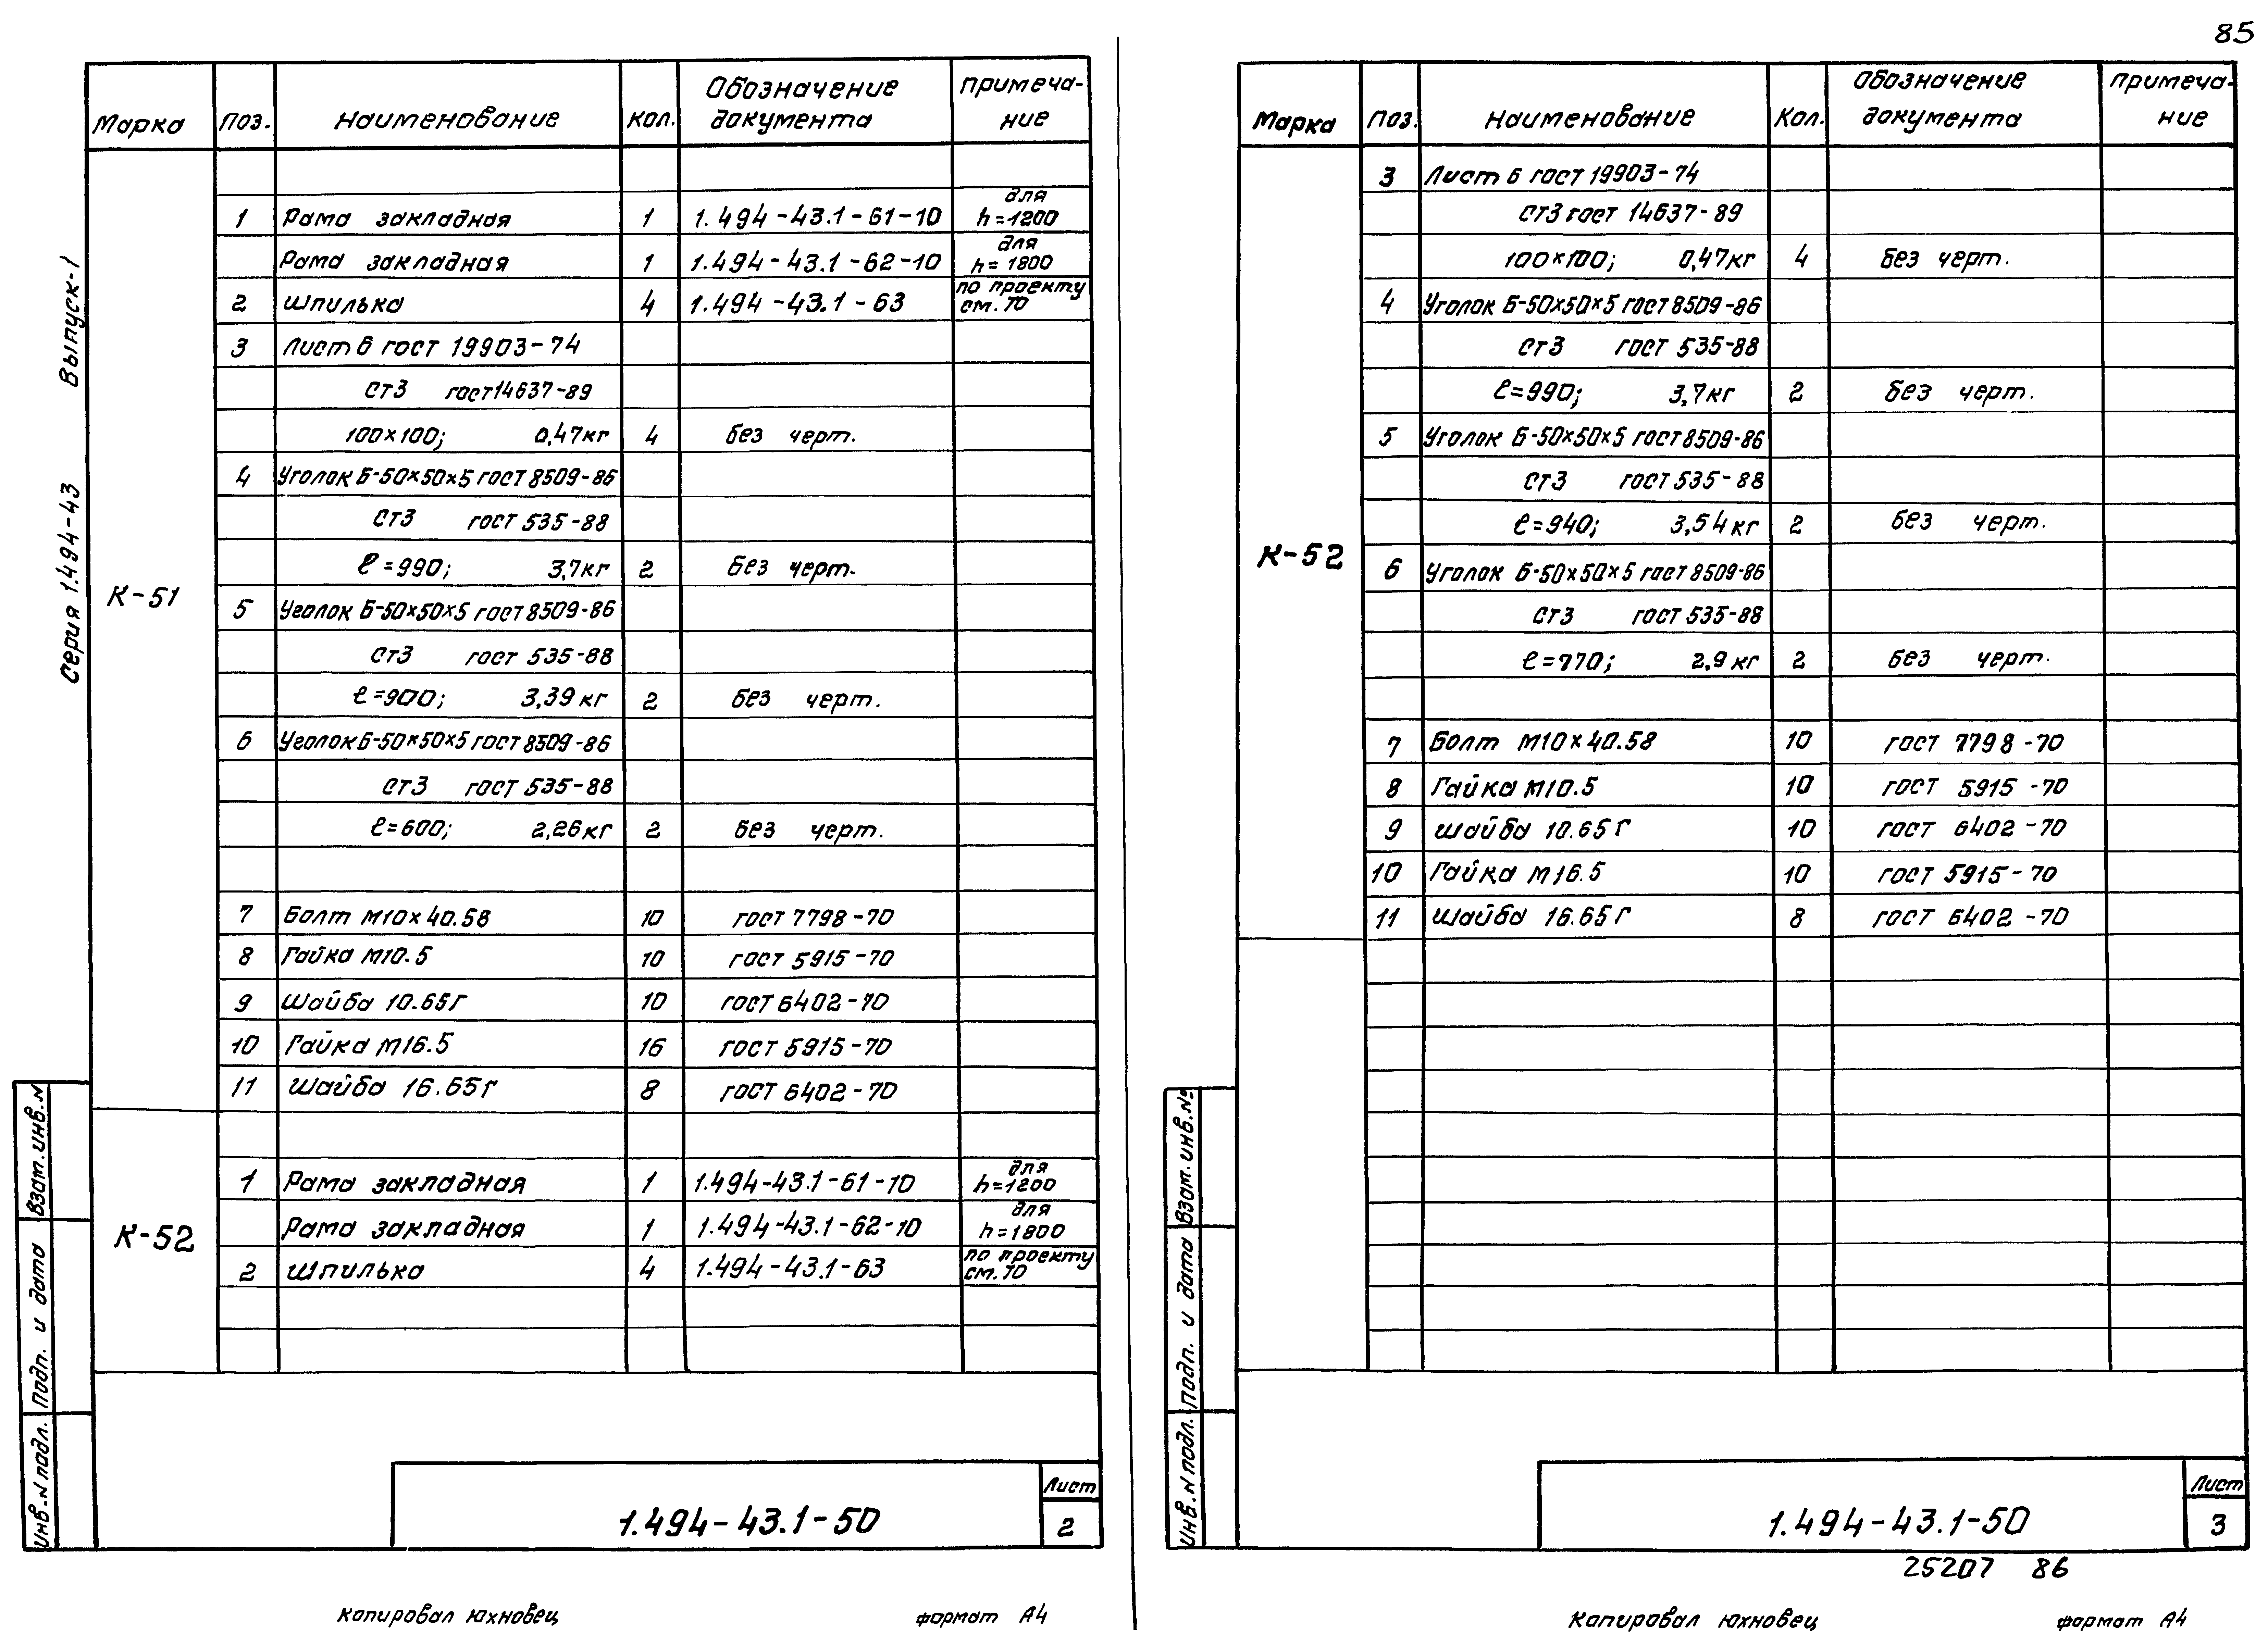 85
Серия 1.494-43 Выпуск-1
Марка Поз. Наименование Кол. Обозначение документа Примечание
К-51
1 Рама закладная 1 1.494-43.1-61-10 для h=1200
Рама закладная 1 1.494-43.1-62-10 для h=1800
2 Шпилька 4 1.494-43.1-63 по проекту см. ТО
3 Лист 6 ГОСТ 19903-74
Ст3 ГОСТ 14637-89
100×100; 0,47кг 4 без черт.
4 Уголок Б-50×50×5 ГОСТ 8509-86
Ст3 ГОСТ 535-88
ℓ=990; 3,7кг 2 без черт.
5 Уголок Б-50×50×5 ГОСТ 8509-86
Ст3 ГОСТ 535-88
ℓ=900; 3,39кг 2 без черт.
6 Уголок Б-50×50×5 ГОСТ 8509-86
Ст3 ГОСТ 535-88
ℓ=600; 2,26кг 2 без черт.
7 Болт М10×40.58 10 ГОСТ 7798-70
8 Гайка М10.5 10 ГОСТ 5915-70
9 Шайба 10.65Г 10 ГОСТ 6402-70
10 Гайка М16.5 16 ГОСТ 5915-70
11 Шайба 16.65Г 8 ГОСТ 6402-70
К-52
1 Рама закладная 1 1.494-43.1-61-10 для h=1200
Рама закладная 1 1.494-43.1-62-10 для h=1800
2 Шпилька 4 1.494-43.1-63 по проекту см. ТО
Инв.N подл. Подп. и дата Взам.инв.N
1.494-43.1-50
Лист
2
Копировал Юхновец формат А4
Марка Поз. Наименование Кол. Обозначение документа Примечание
К-52
3 Лист 6 ГОСТ 19903-74
Ст3 ГОСТ 14637-89
100×100; 0,47кг 4 без черт.
4 Уголок Б-50×50×5 ГОСТ 8509-86
Ст3 ГОСТ 535-88
ℓ=990; 3,7кг 2 без черт.
5 Уголок Б-50×50×5 ГОСТ 8509-86
Ст3 ГОСТ 535-88
ℓ=940; 3,54кг 2 без черт.
6 Уголок Б-50×50×5 ГОСТ 8509-86
Ст3 ГОСТ 535-88
ℓ=770; 2,9кг 2 без черт.
7 Болт М10×40.58 10 ГОСТ 7798-70
8 Гайка М10.5 10 ГОСТ 5915-70
9 Шайба 10.65Г 10 ГОСТ 6402-70
10 Гайка М16.5 10 ГОСТ 5915-70
11 Шайба 16.65Г 8 ГОСТ 6402-70
Инв.N подл. Подп. и дата Взам.инв.№
1.494-43.1-50
Лист
3
25207 86
Копировал Юхновец формат А4